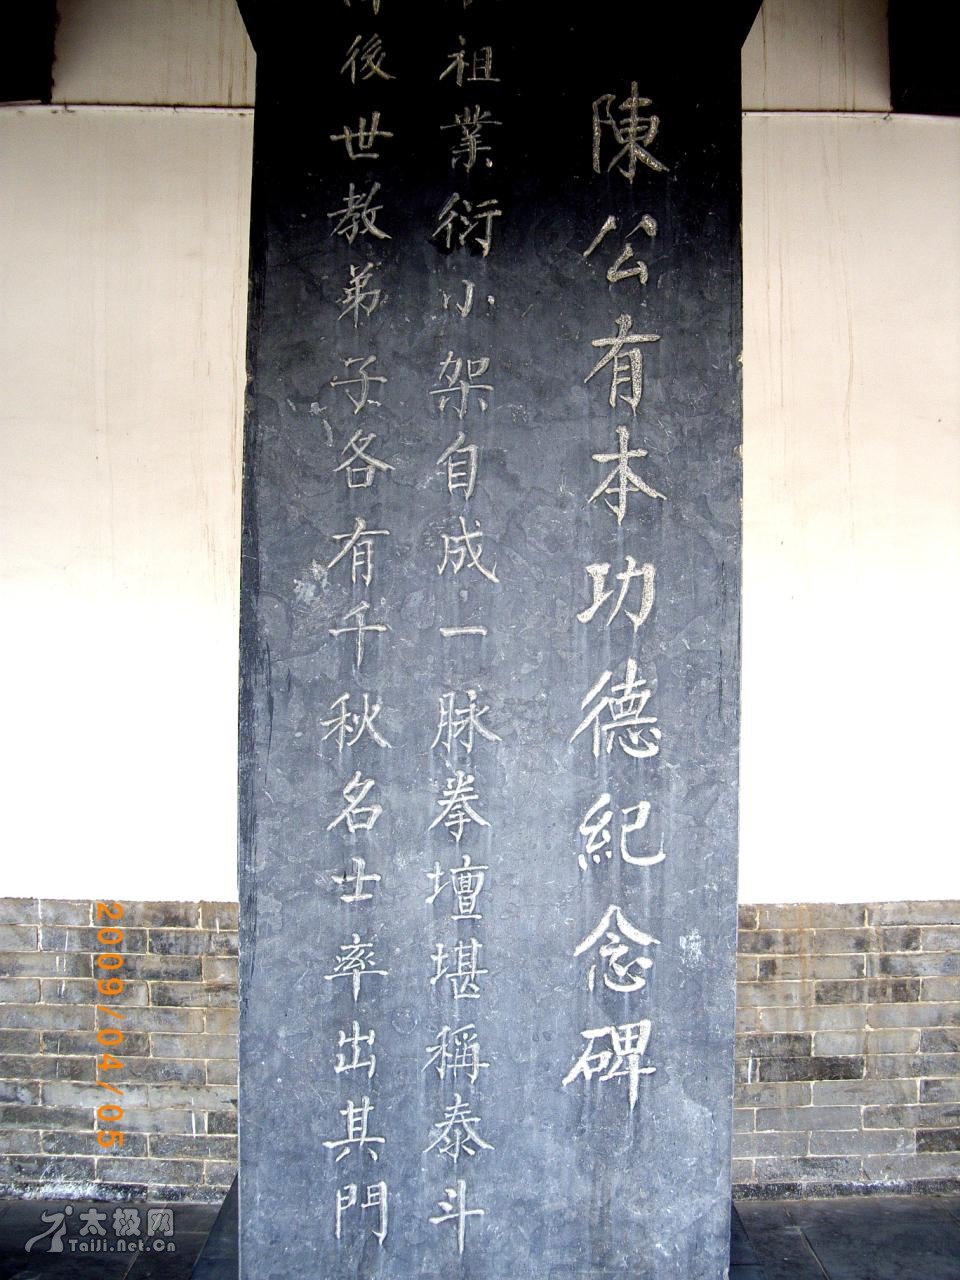 陳公有本功德紀念碑
祖業衍小架自成一脉拳壇堪稱泰斗
後世教弟子各有千秋名士率出其門
2009/04/05
太极网
TaiJi.Net.Cn